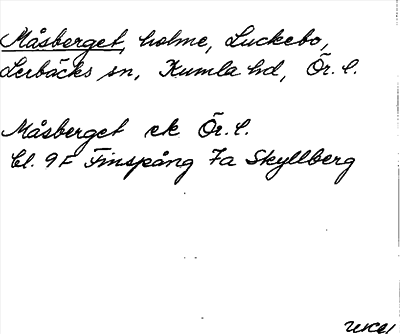 Måsberget, holme, Luckebo,
Lerbäcks sn, Kumla hd, Ör. l.
Måsberget ek Ör. l.
bl. 9F Finspång 7a Skyllberg